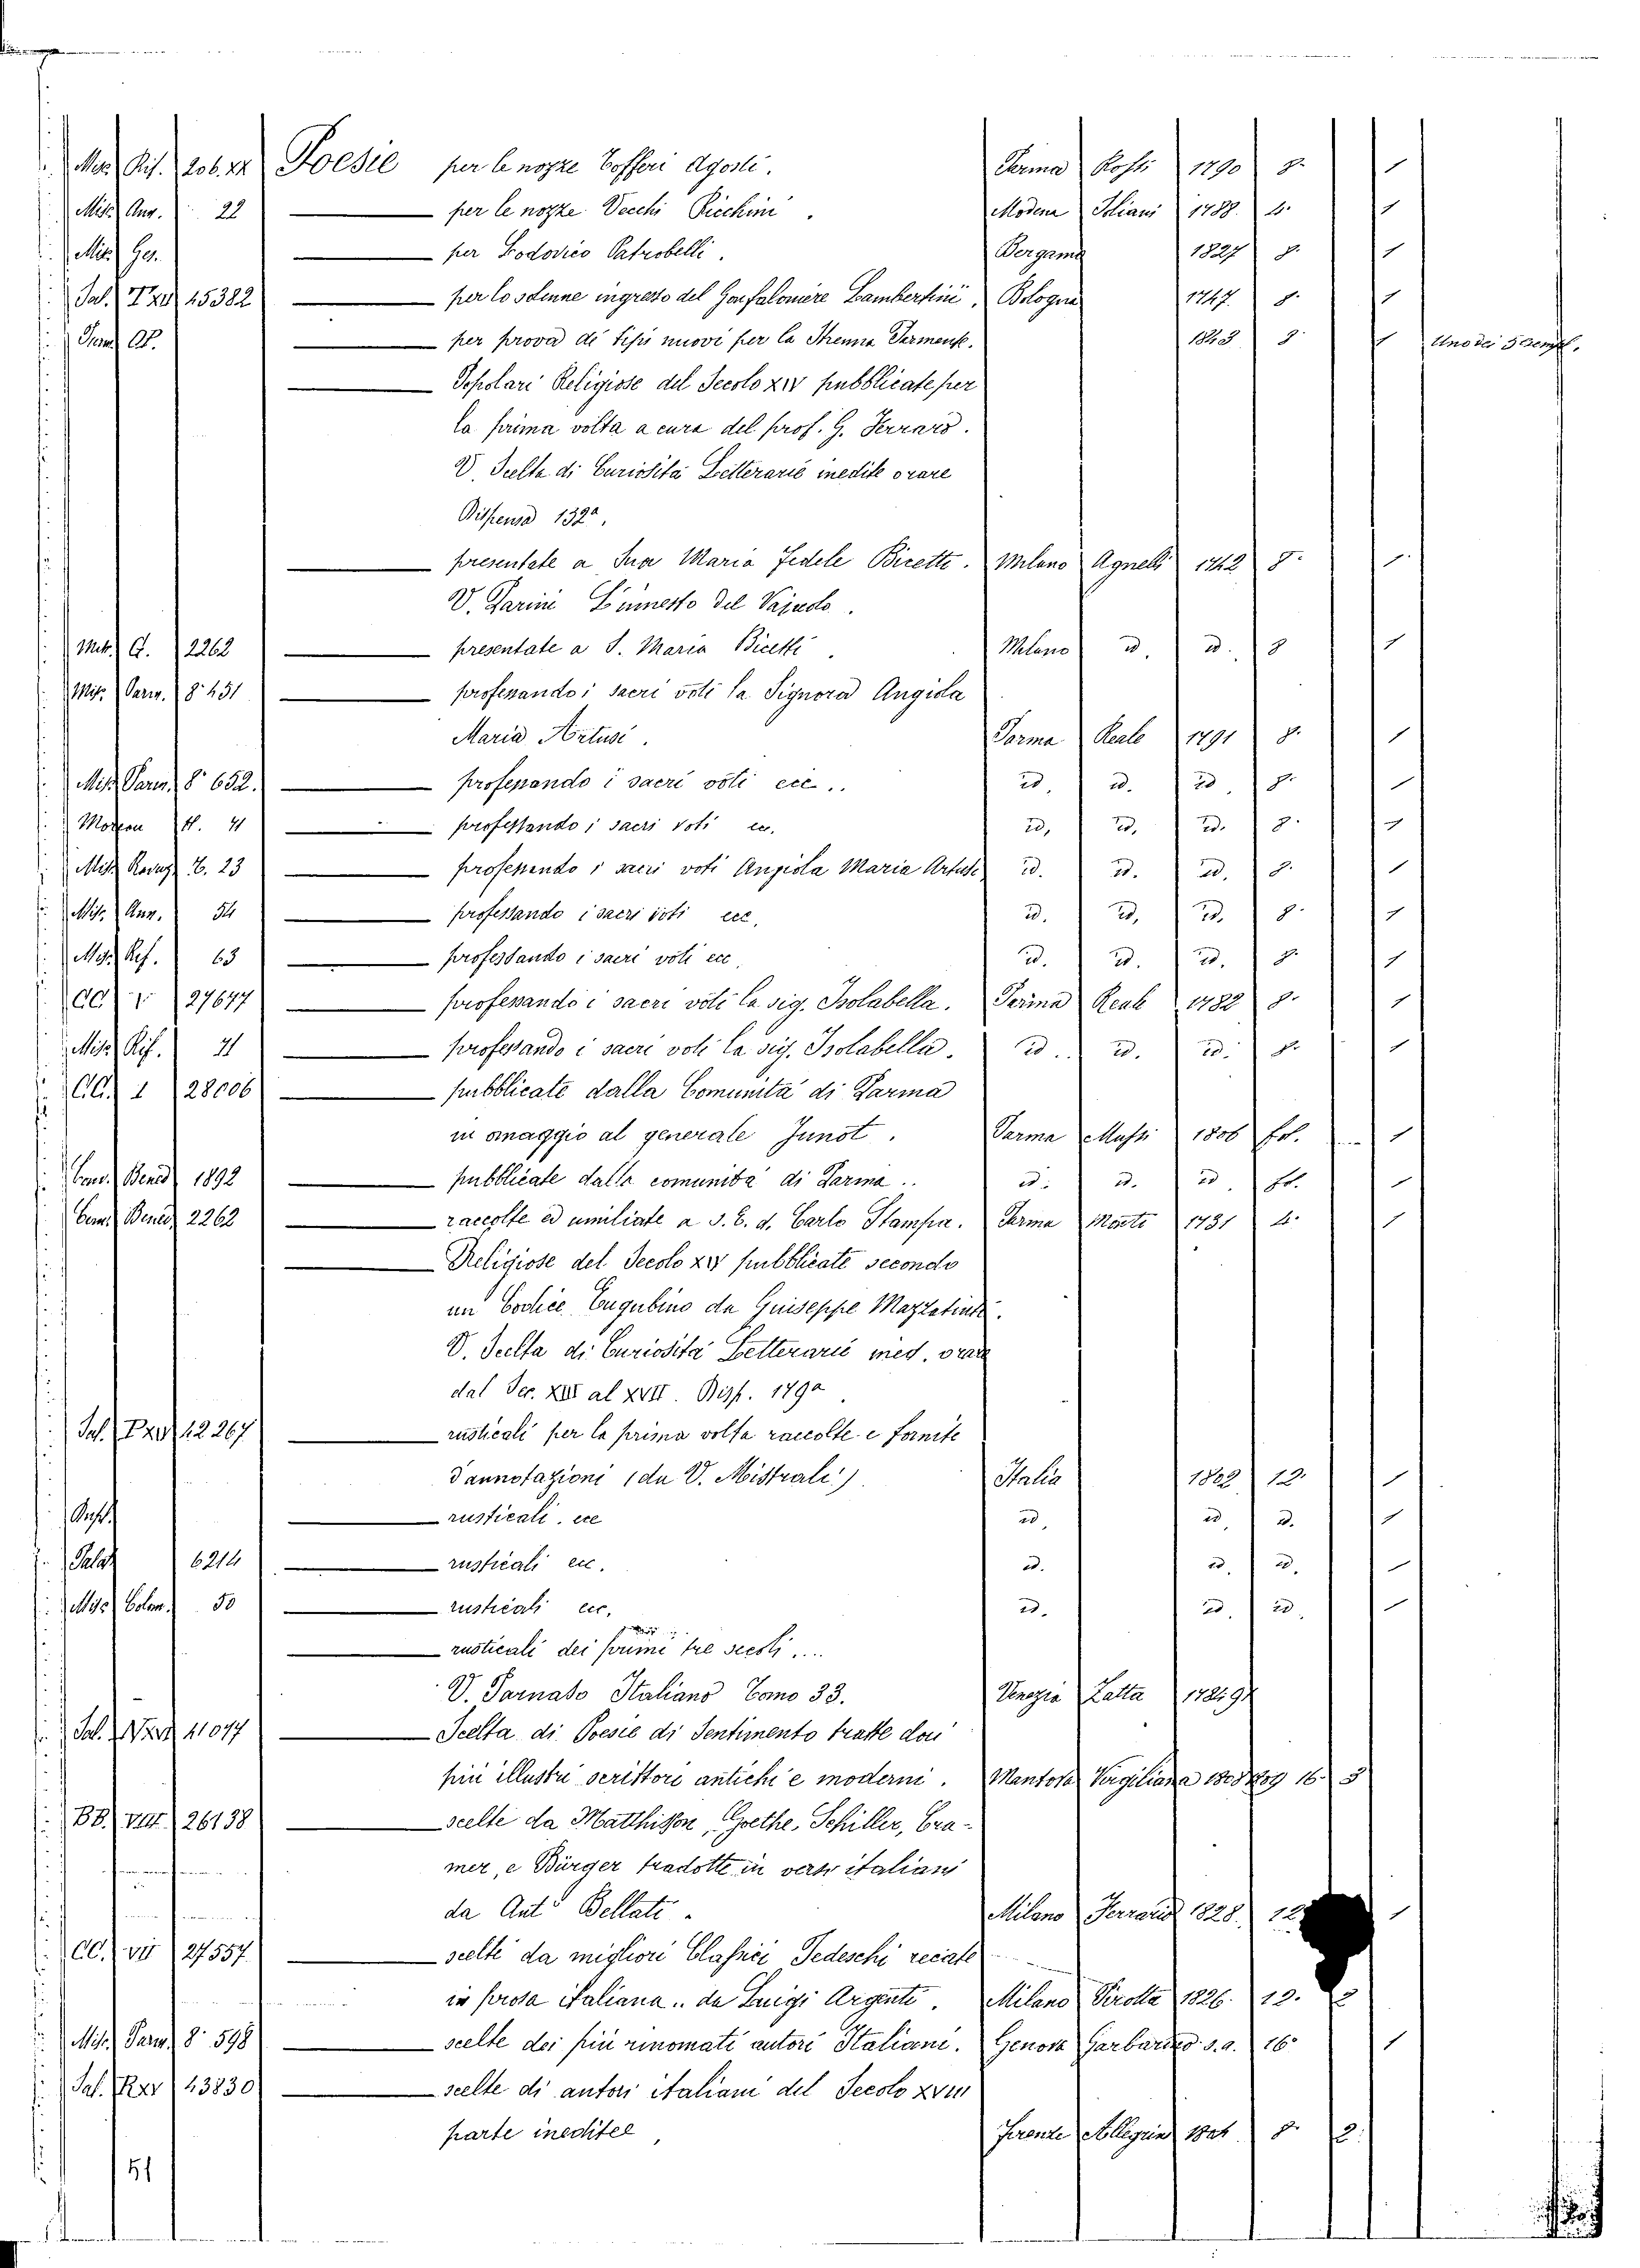 Mis. Rif. 206. 22 Poesie per le nozze Tofferi Agosti. Parma Rossi 1790 8° 1
Mis. Ann. 22 — per le nozze Vecchi Picchini. Modena Soliani 1788. 4° 1
Mis. Ges. — per Lodovico Patrobelli. Bergamo 1827 8° 1
Sal. 45382 — per lo solenne ingresso del Gonfaloniere Lambertini. Bologna 1747. 8° 1
— per prova di tipi nuovi per la Strenna Parmense. 1843 8° 1 Uno dei 5 esempl.
— Popolari Religiose del Secolo XIV pubblicate per
la prima volta a cura del prof. G. Ferraro.
V. Scelta di Curiosità Letterarie inedite o rare
Dispensa 132a.
— presentate a Sua Maria Fedele Bicetti. Milano Agnelli 1742 8° 1
V. Parini L'innesto del Vajuolo.
Mit. G. 2262 — presentate a S. Maria Bicetti. Milano id. id. 8 1
Mis. Parm. 8° 451 — professando i sacri voti la Signora Angiola
Maria Artusi. Parma Reale 1791 8° 1
Mis. Parm. 8° 652. — professando i sacri voti ecc.. id. id. id. 8° 1
Moreau 41 — professando i sacri voti ec. id. id. id. 8° 1
Mis. 23 — professando i sacri voti Angiola Maria Artusi id. id. id. 8° 1
Mis. Ann. 54 — professando i sacri voti ecc. id. id. id. 8° 1
Mis. Rif. 63 — professando i sacri voti ecc. id. id. id. 8° 1
CC 27647 — professando i sacri voti la sig. Isolabella. Parma Reale 1782 8° 1
Mis. Rif. 71 — professando i sacri voti la sig. Isolabella. id. id. id. 8° 1
CC. 1 28006 — pubblicate dalla Comunità di Parma
in omaggio al generale Junot. Parma Mussi 1806 fol. 1
Com. Bened. 1892 — pubblicate dalla comunità di Parma.. id. id. id. fol. 1
Com. Bened. 2262 — raccolte ed umiliate a S. E. d. Carlo Stampa. Parma Monti 1731 4° 1
— Religiose del Secolo XIV pubblicate secondo
un Codice Eugubino da Guiseppe Mazzatinti.
V. Scelta di Curiosità Letterarie ined. o rare
dal Sec. XIII al XVII. Disp. 179a
Sal. 12267 — rusticali per la prima volta raccolte e fornite
d'annotazioni (da V. Mistrali) Italia 1802 12° 1
— rusticali. ecc id. id. id. 1
Palat 6214 — rusticali ecc. id. id. id. 1
Misc. Colom. 50 — rusticali ecc. id. id. id. 1
— rusticali dei primi tre secoli....
V. Parnaso Italiano Tomo 33. Venezia Zatta
Sal. 41077 — Scelta di Poesie di Sentimento tratte dai
più illustri scrittori antichi e moderni. Mantova Virgiliana 16° 3
BB. VIII 26138 — scelte da Matthisson, Goethe, Schiller, Cra-
mer, e Bürger tradotte in versi italiani
da Ant° Bellati. Milano Ferrario 1828. 12 1
CC. VII 27557 — scelte da migliori Classici Tedeschi recate
in prosa italiana.. da Luigi Argenti. Milano Pirotta 1826. 12. 2
Mis. Parm. 8° 598 — scelte dei più rinomati autori Italiani. Genova Garbarino s.a. 16° 1
Sal. 43830 — scelte di autori italiani del Secolo XVIII
parte inedite Firenze Allegrini 8° 2
51